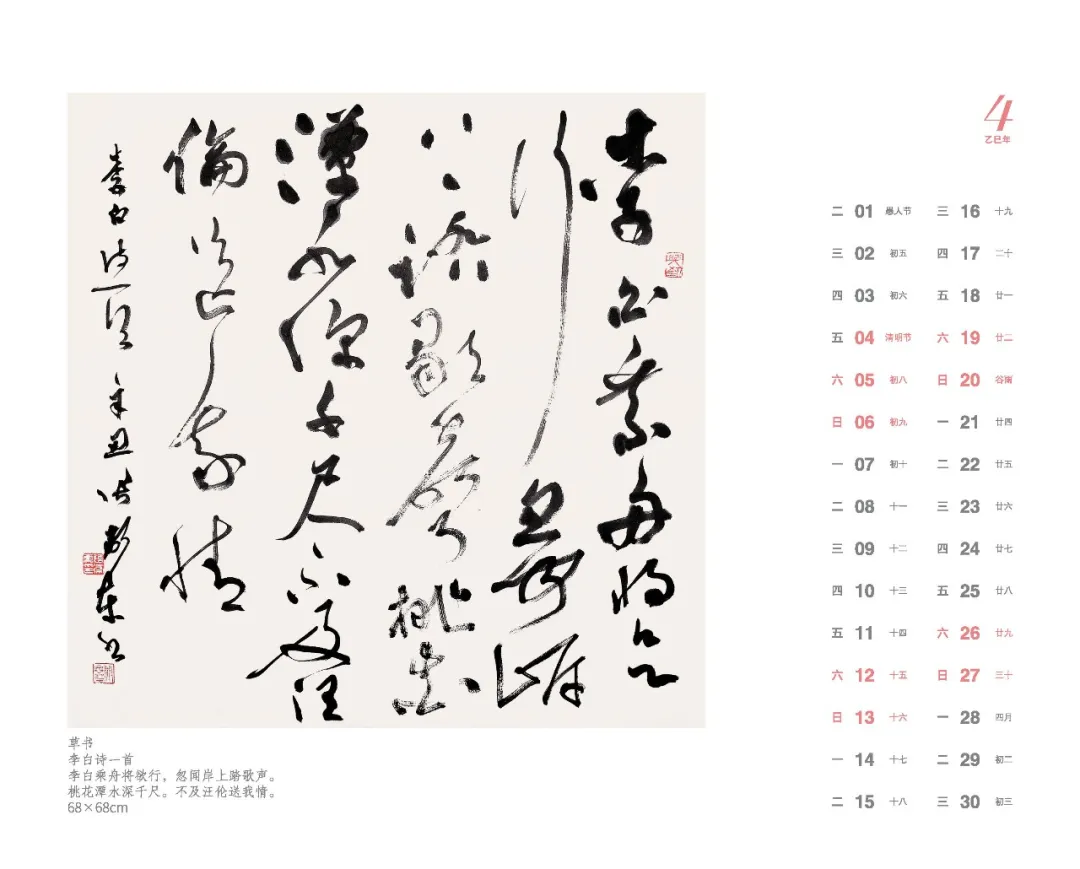 李白乘舟将欲
行忽闻岸
上踏歌声桃花
潭水深千尺不及汪
倫送我情
李白诗一首 辛丑
草书
李白诗一首
李白乘舟将欲行，忽闻岸上踏歌声。
桃花潭水深千尺。不及汪伦送我情。
68×68cm
4
乙巳年
二 01 愚人节
三 02 初五
四 03 初六
五 04 清明节
六 05 初八
日 06 初九
一 07 初十
二 08 十一
三 09 十二
四 10 十三
五 11 十四
六 12 十五
日 13 十六
一 14 十七
二 15 十八
三 16 十九
四 17 二十
五 18 廿一
六 19 廿二
日 20 谷雨
一 21 廿四
二 22 廿五
三 23 廿六
四 24 廿七
五 25 廿八
六 26 廿九
日 27 三十
一 28 四月
二 29 初二
三 30 初三